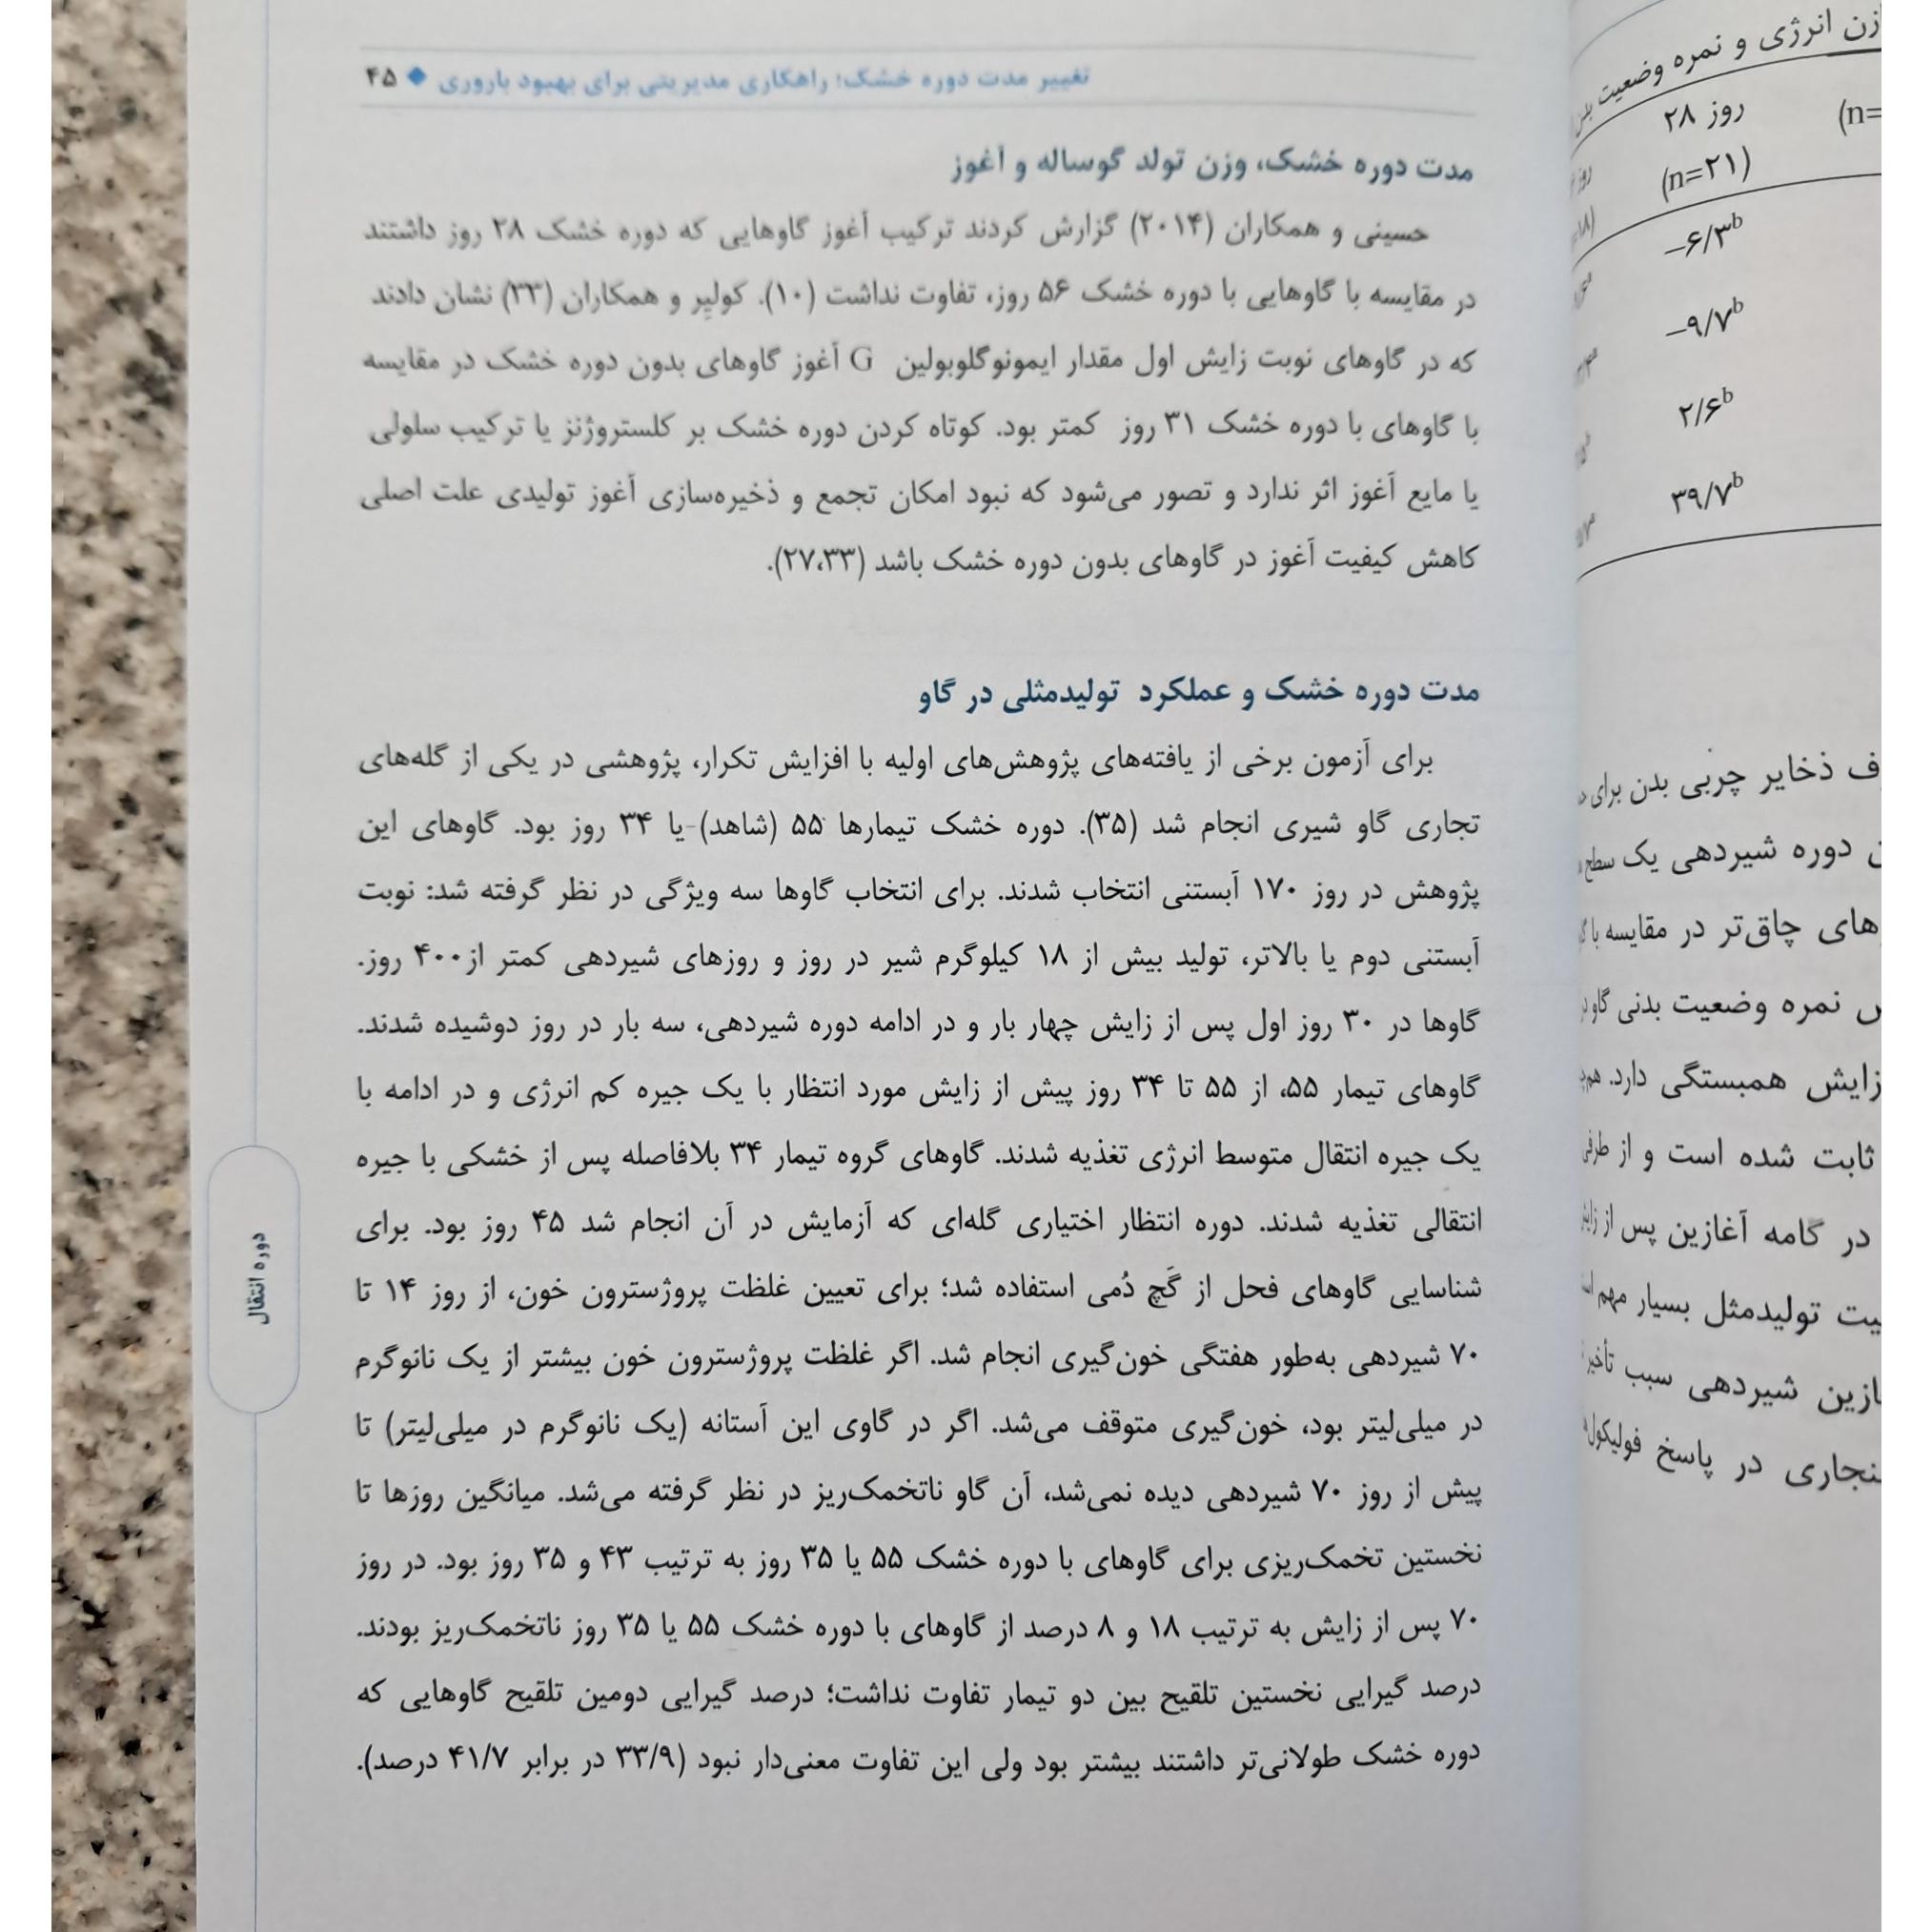 تغییر مدت دوره خشک؛ راهکاری مدیریتی برای بهبود باروری ◆ ۴۵
مدت دوره خشک، وزن تولد گوساله و آغوز
حسینی و همکاران (۲۰۱۴) گزارش کردند ترکیب آغوز گاوهایی که دوره خشک ۲۸ روز داشتند
در مقایسه با گاوهایی با دوره خشک ۵۶ روز، تفاوت نداشت (۱۰). کولیِر و همکاران (۳۳) نشان دادند
که در گاوهای نوبت زایش اول مقدار ایمونوگلوبولین G آغوز گاوهای بدون دوره خشک در مقایسه
با گاوهای با دوره خشک ۳۱ روز کمتر بود. کوتاه کردن دوره خشک بر کلستروژنز یا ترکیب سلولی
یا مایع آغوز اثر ندارد و تصور می‌شود که نبود امکان تجمع و ذخیره‌سازی آغوز تولیدی علت اصلی
کاهش کیفیت آغوز در گاوهای بدون دوره خشک باشد (۲۷،۳۳).
مدت دوره خشک و عملکرد تولیدمثلی در گاو
برای آزمون برخی از یافته‌های پژوهش‌های اولیه با افزایش تکرار، پژوهشی در یکی از گله‌های
تجاری گاو شیری انجام شد (۳۵). دوره خشک تیمارها ۵۵ (شاهد)-یا ۳۴ روز بود. گاوهای این
پژوهش در روز ۱۷۰ آبستنی انتخاب شدند. برای انتخاب گاوها سه ویژگی در نظر گرفته شد: نوبت
آبستنی دوم یا بالاتر، تولید بیش از ۱۸ کیلوگرم شیر در روز و روزهای شیردهی کمتر از۴۰۰ روز.
گاوها در ۳۰ روز اول پس از زایش چهار بار و در ادامه دوره شیردهی، سه بار در روز دوشیده شدند.
گاوهای تیمار ۵۵، از ۵۵ تا ۳۴ روز پیش از زایش مورد انتظار با یک جیره کم انرژی و در ادامه با
یک جیره انتقال متوسط انرژی تغذیه شدند. گاوهای گروه تیمار ۳۴ بلافاصله پس از خشکی با جیره
انتقالی تغذیه شدند. دوره انتظار اختیاری گله‌ای که آزمایش در آن انجام شد ۴۵ روز بود. برای
شناسایی گاوهای فحل از گَچ دُمی استفاده شد؛ برای تعیین غلظت پروژسترون خون، از روز ۱۴ تا
۷۰ شیردهی به‌طور هفتگی خون‌گیری انجام شد. اگر غلظت پروژسترون خون بیشتر از یک نانوگرم
در میلی‌لیتر بود، خون‌گیری متوقف می‌شد. اگر در گاوی این آستانه (یک نانوگرم در میلی‌لیتر) تا
پیش از روز ۷۰ شیردهی دیده نمی‌شد، آن گاو ناتخمک‌ریز در نظر گرفته می‌شد. میانگین روزها تا
نخستین تخمک‌ریزی برای گاوهای با دوره خشک ۵۵ یا ۳۵ روز به ترتیب ۴۳ و ۳۵ روز بود. در روز
۷۰ پس از زایش به ترتیب ۱۸ و ۸ درصد از گاوهای با دوره خشک ۵۵ یا ۳۵ روز ناتخمک‌ریز بودند.
درصد گیرایی نخستین تلقیح بین دو تیمار تفاوت نداشت؛ درصد گیرایی دومین تلقیح گاوهایی که
دوره خشک طولانی‌تر داشتند بیشتر بود ولی این تفاوت معنی‌دار نبود (۳۳/۹ در برابر ۴۱/۷ درصد).
دوره انتقال
انرژی و نمره وضعیت
(n=
۲۸ روز
(n=۲۱)
–۶/۳b
–۹/۷b
۲/۶b
۳۹/۷b
ذخایر چربی بدن برای
دوره شیردهی یک سطح
چاق‌تر در مقایسه با
نمره وضعیت بدنی گاو
زایش همبستگی دارد.
ثابت شده است و از طرفی
در گامه آغازین پس از
تولیدمثل بسیار مهم
شیردهی سبب تأخیر
در پاسخ